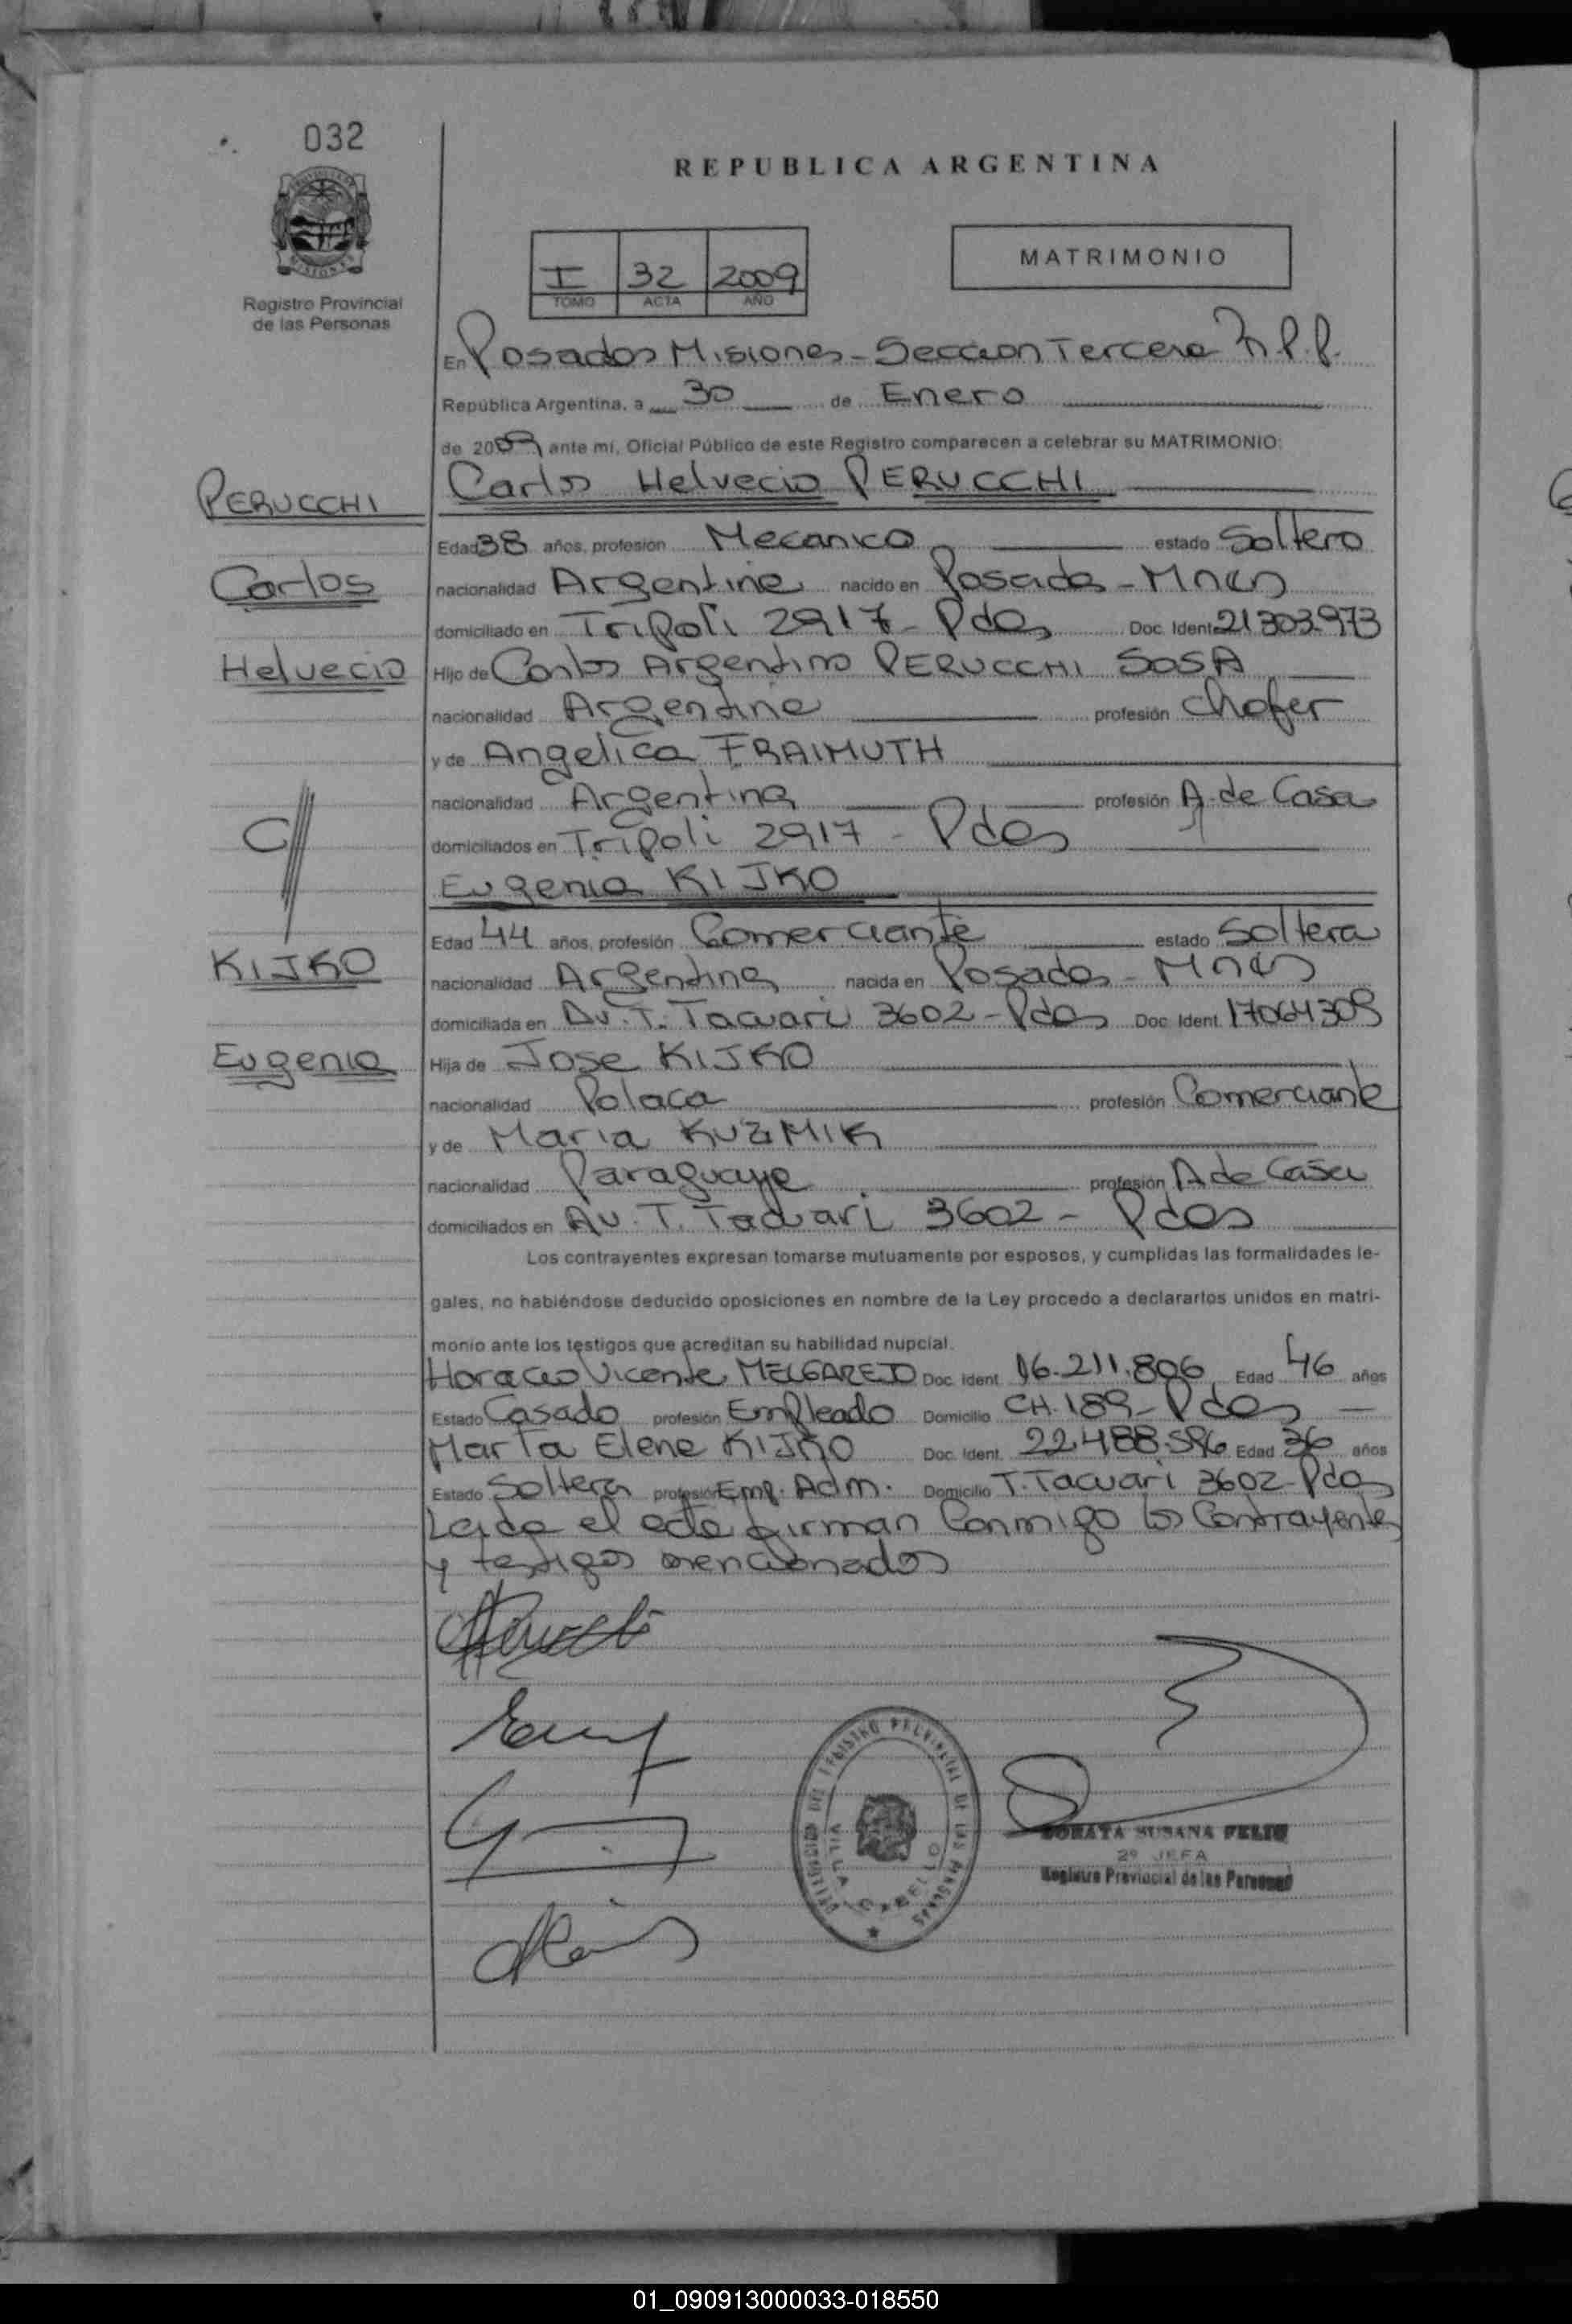 032
REPUBLICA ARGENTINA
MATRIMONIO
I 32 2009
TOMO ACTA AÑO
Registro Provincial
de las Personas
En Posadas Misiones - Seccion Tercera R.P.P.
República Argentina, a 30 de Enero
de 2009 ante mí, Oficial Público de este Registro comparecen a celebrar su MATRIMONIO:
PERUCCHI
Carlos Helvecio PERUCCHI
Edad 38 años, profesión Mecanico estado Soltero
Carlos
nacionalidad Argentina nacido en Posadas - Mnes
domiciliado en Tripoli 2917 - Pdas Doc. Ident. 21303.973
Helvecio
Hijo de Carlos Argentino PERUCCHI SOSA
nacionalidad Argentina profesión Chofer
y de Angelica FRAIMUTH
nacionalidad Argentina profesión A. de Casa
C//
domiciliados en Tripoli 2917 - Pdas
Eugenia KIJKO
Edad 44 años, profesión Comerciante estado Soltera
KIJKO
nacionalidad Argentina nacida en Posadas - Mnes
domiciliada en Av. T. Tacuari 3602 - Pdas Doc. Ident. 17064309
Eugenia
Hija de Jose KIJKO
nacionalidad Polaca profesión Comerciante
y de Maria KUZMIK
nacionalidad Paraguaya profesión A de Casa
domiciliados en Av. T. Tacuari 3602 - Pdas
Los contrayentes expresan tomarse mutuamente por esposos, y cumplidas las formalidades le-
gales, no habiéndose deducido oposiciones en nombre de la Ley procedo a declararlos unidos en matri-
monio ante los testigos que acreditan su habilidad nupcial.
Horacio Vicente MELGAREJO Doc. Ident. 16.211.806 Edad 46 años
Estado Casado profesión Empleado Domicilio CH. 189 - Pdas
Marta Elena KIJKO Doc. Ident. 22.488.596 Edad 36 años
Estado Soltera profesión Emp. Adm. Domicilio T. Tacuari 3602 - Pdas
Leida el acta firman Conmigo los Contrayentes
y testigos mencionados
DELEGACION DEL REGISTRO PROVINCIAL DE LAS PERSONAS
VILLA CABELLO
SUSANA FELIU
2º JEFA
Registro Provincial de las Personas
01_090913000033-018550